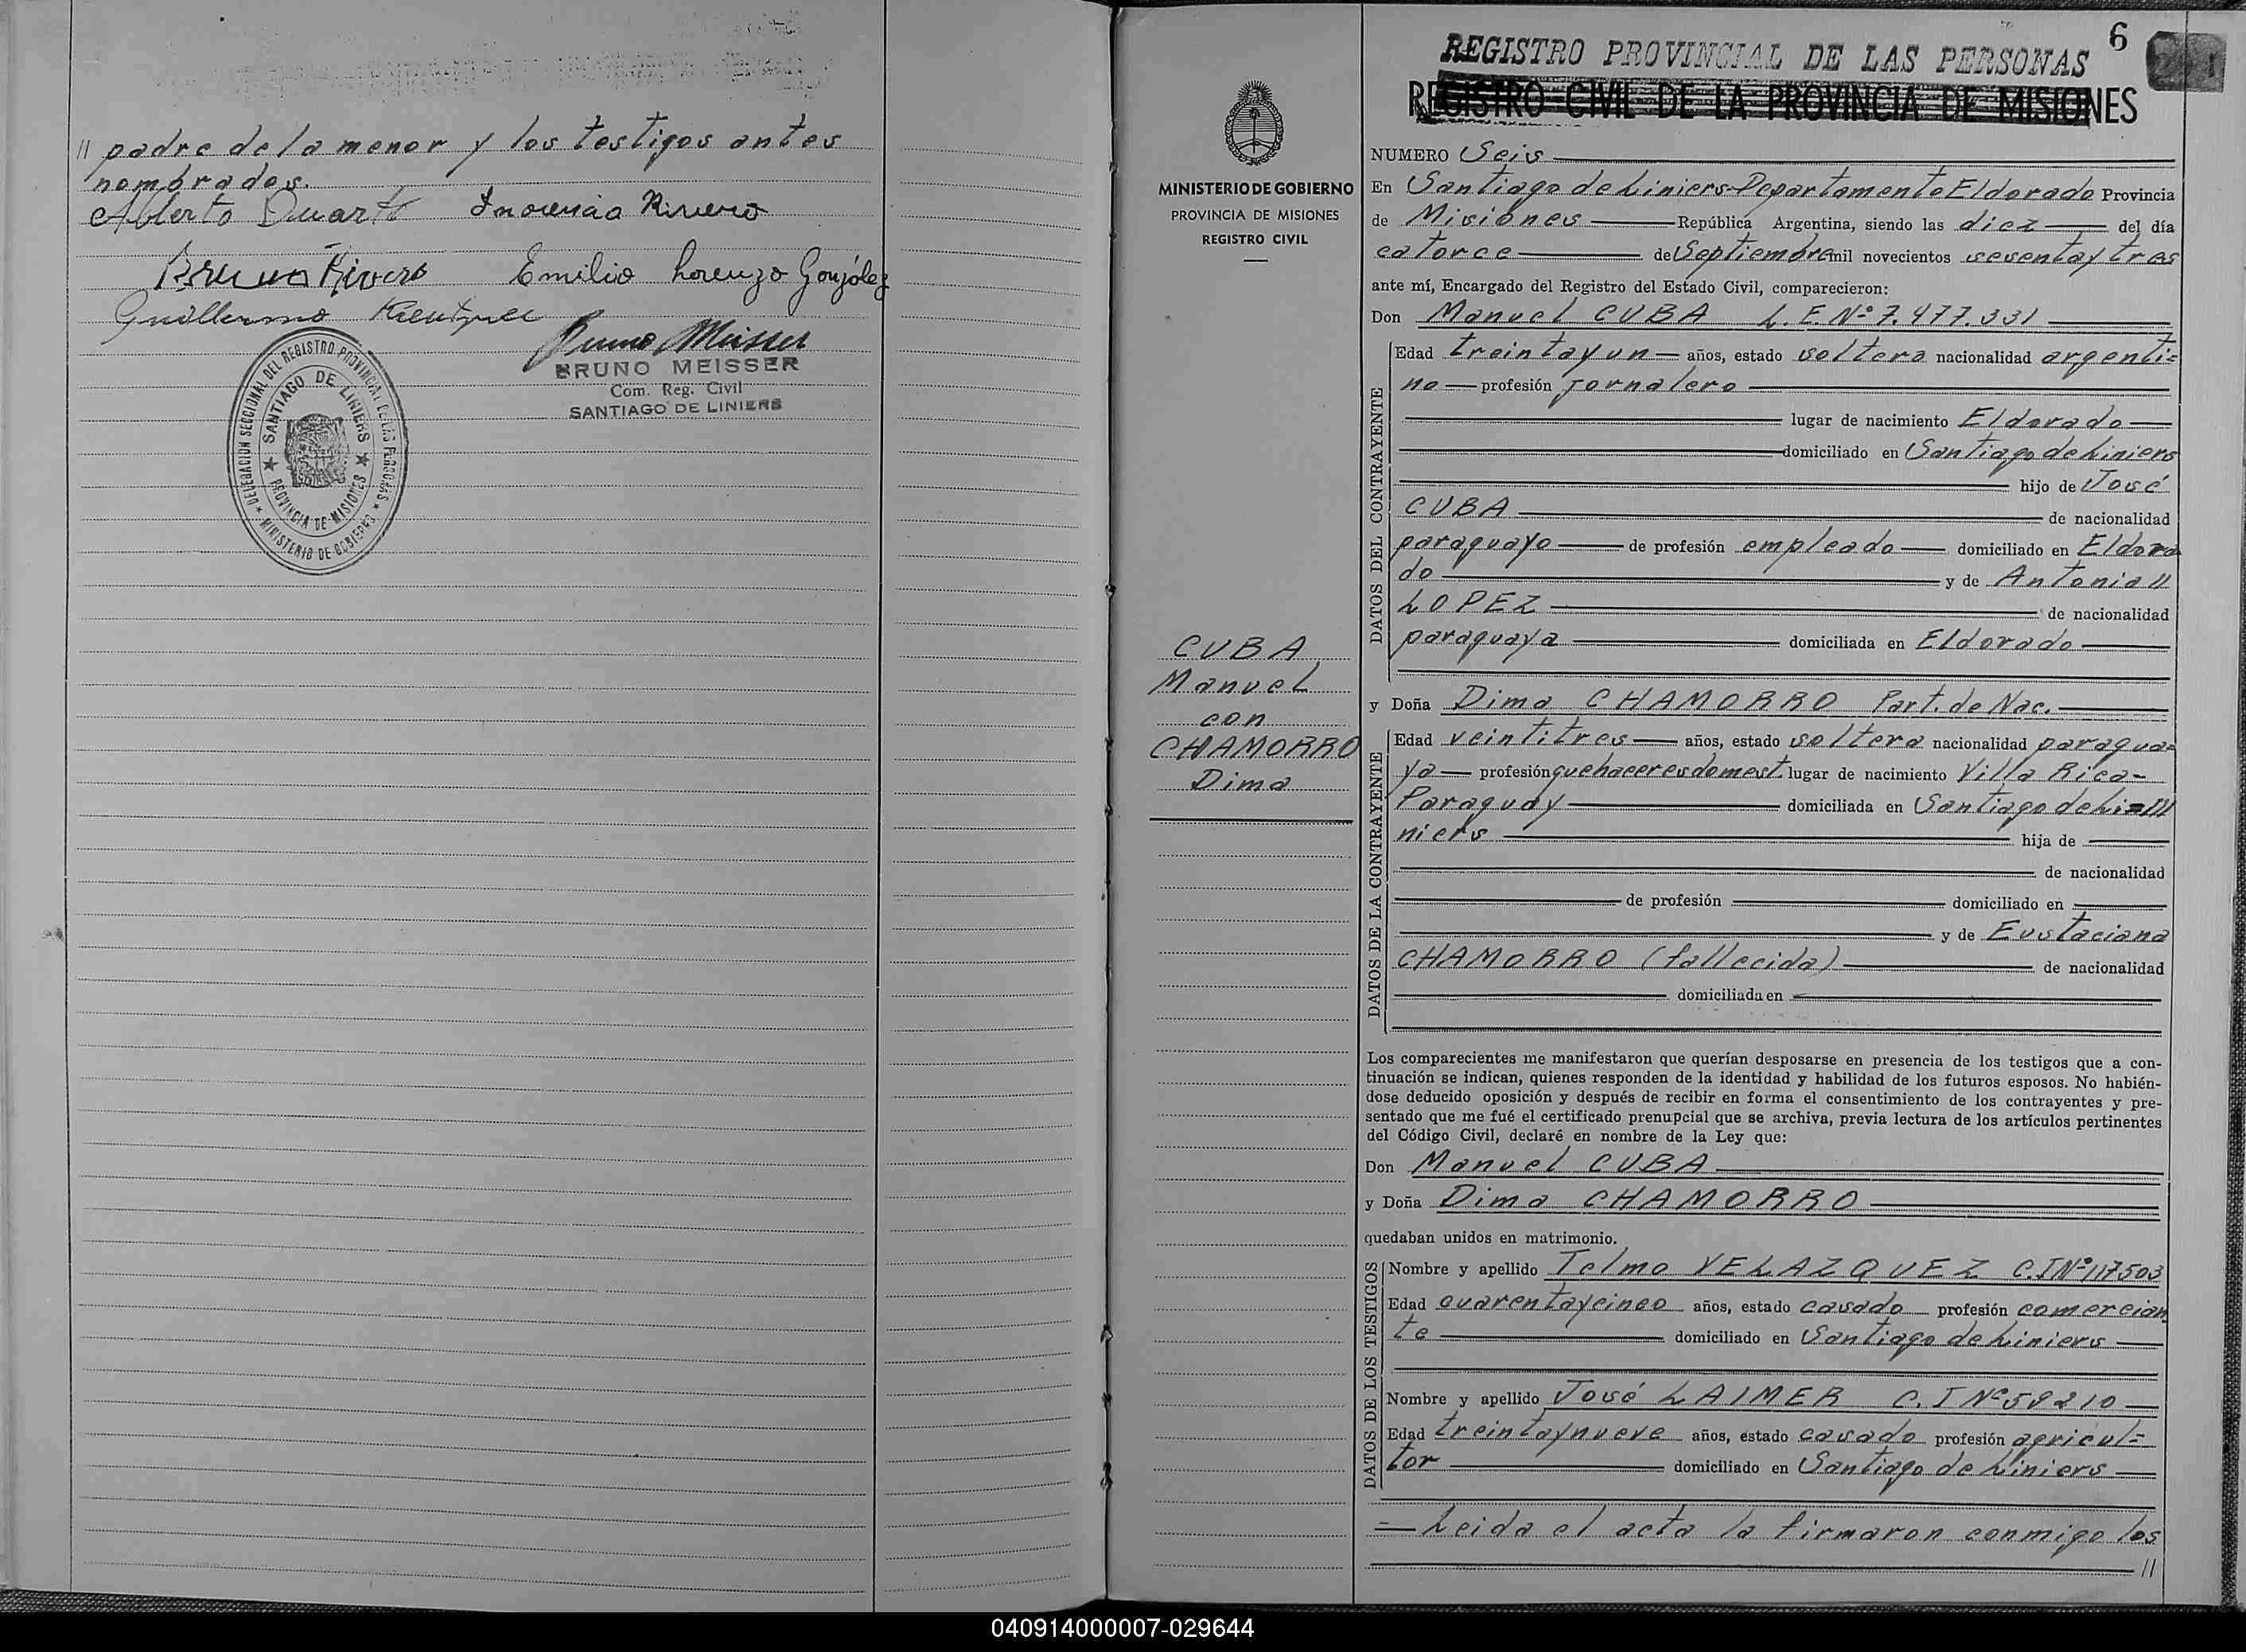 // padre de la menor y los testigos antes
nombrados.
Alberto Duarte Inocencia Rivero
Bruno Rivero Emilio Lorenzo González
Guillermo
BRUNO MEISSER
Com. Reg. Civil
SANTIAGO DE LINIERS
DELEGACION SECCIONAL DEL REGISTRO PROVINCIAL DE LAS PERSONAS
★ MINISTERIO DE GOBIERNO ★
SANTIAGO DE LINIERS
★ PROVINCIA DE MISIONES ★
6
REGISTRO PROVINCIAL DE LAS PERSONAS
REGISTRO CIVIL DE LA PROVINCIA DE MISIONES
MINISTERIO DE GOBIERNO
PROVINCIA DE MISIONES
REGISTRO CIVIL
CUBA
Manuel
con
CHAMORRO
Dima
NUMERO Seis
En Santiago de Liniers-Departamento Eldorado Provincia
de Misiones República Argentina, siendo las diez del día
catorce de Septiembre mil novecientos sesenta y tres
ante mí, Encargado del Registro del Estado Civil, comparecieron:
Don Manuel CUBA L.E.Nº 7.477.331
DATOS DEL CONTRAYENTE
Edad treinta y un años, estado soltero nacionalidad argenti=
no profesión jornalero
lugar de nacimiento Eldorado
domiciliado en Santiago de Liniers
hijo de José
CUBA de nacionalidad
paraguayo de profesión empleado domiciliado en Eldora
do y de Antonia //
LOPEZ de nacionalidad
paraguaya domiciliada en Eldorado
y Doña Dima CHAMORRO Part. de Nac.
DATOS DE LA CONTRAYENTE
Edad veintitres años, estado soltera nacionalidad paragua=
ya profesión quehaceres domest. lugar de nacimiento Villa Rica-
Paraguay domiciliada en Santiago de Li=///
niers hija de
de nacionalidad
de profesión domiciliado en
y de Eustaciana
CHAMORRO (fallecida) de nacionalidad
domiciliada en
Los comparecientes me manifestaron que querían desposarse en presencia de los testigos que a con-
tinuación se indican, quienes responden de la identidad y habilidad de los futuros esposos. No habién-
dose deducido oposición y después de recibir en forma el consentimiento de los contrayentes y pre-
sentado que me fué el certificado prenupcial que se archiva, previa lectura de los artículos pertinentes
del Código Civil, declaré en nombre de la Ley que:
Don Manuel CUBA
y Doña Dima CHAMORRO
quedaban unidos en matrimonio.
DATOS DE LOS TESTIGOS
Nombre y apellido Telmo VELAZQUEZ C.I Nº 117503
Edad cuarenta y cinco años, estado casado profesión comercian
te domiciliado en Santiago de Liniers
Nombre y apellido José LAIMER C.I Nº 59210
Edad treinta y nueve años, estado casado profesión agricul=
tor domiciliado en Santiago de Liniers
= Leida el acta la firmaron conmigo los
//
040914000007-029644